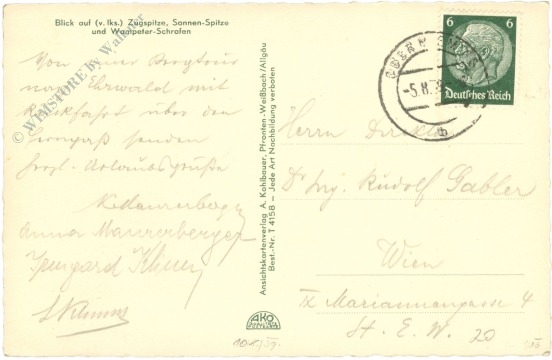 Blick auf (v. lks.) Zugspitze, Sonnen-Spitze
und Waatpeter-Schrofen
Von einer Bergtour
nach Ehrwald mit
Rückfahrt über den
Fernpaß senden
herzl. Urlaubsgrüße
Anna Mannerberger
Irmgard
© WIMSTORE by Walluter
Ansichtskartenverlag A. Kohlbauer, Pfronten-Weißbach/Allgäu
Best.-Nr. T 4158 – Jede Art Nachbildung verboten
AKO
6 6
Deutsches Reich
-5.8.
b
Herrn Direktor
Dr Ing. Rudolf Gabler
Wien
IX Mariannengasse 4
St. E. W. 20